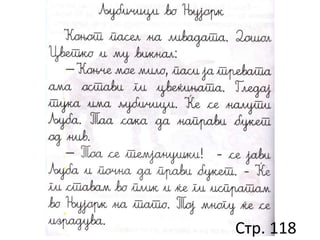 Љубичици во Њујорк
Коњот пасел на ливадата. Дошол
Цветко и му викнал:
– Конче мое мило, паси ја тревата
ама остави ги цвеќињата. Гледај
тука има љубичици. Ќе се налути
Љуба. Таа сака да направи букет
од нив.
– Тоа се темјанушки! - се јави
Љуба и почна да прави букет. - Ќе
ги ставам во плик и ќе ги испратам
во Њујорк на тато. Тој многу ќе се
израдува.
Стр. 118